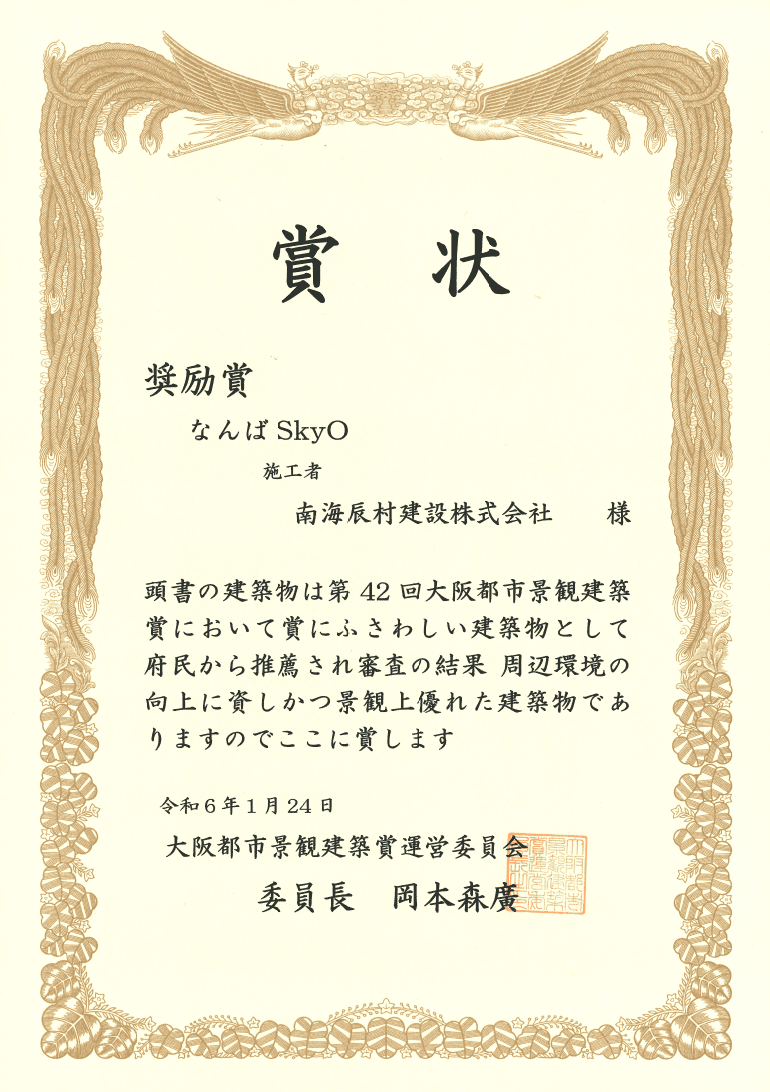 賞　状
奨励賞
なんばSkyO
施工者
南海辰村建設株式会社　様
頭書の建築物は第 42 回大阪都市景観建築
賞において賞にふさわしい建築物として
府民から推薦され審査の結果 周辺環境の
向上に資しかつ景観上優れた建築物であ
りますのでここに賞します
令和6年1月24日
大阪都市景観建築賞運営委員会
委員長　岡本森廣